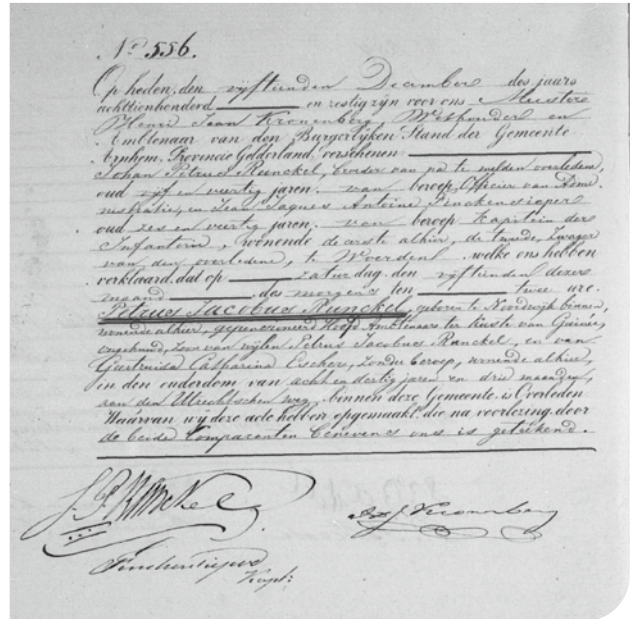 No. 556.
Op heden, den vijftienden December des jaars
achttienhonderd en zestig zijn voor ons Meester
Henri Jean Kronenberg, Wethouder en
Ambtenaar van den Burgerlijken Stand der Gemeente
Arnhem, Provincie Gelderland, verschenen
Johan Petrus Runckel, broeder van na te melden overledene,
oud vijf en veertig jaren, van beroep Officier van Admi
nistratie, en Jean Jaques Antoine
oud zes en veertig jaren, van beroep Kapitein der
Infanterie, wonende de eerste alhier, de tweede, zwager
van den overledene, te Woerden welke ons hebben
verklaard, dat op zaturdag, den vijftienden dezer
maand des morgens ten twee ure.
Petrus Jacobus Runckel, geboren te Noordwijk binnen,
wonende alhier, gepensioneerd Hoofd Ambtenaar ter kuste van Guinea,
ongehuwd, zoon van wijlen Petrus Jacobus Runckel, en van
Geertruida Catharina Escher, zonder beroep, wonende alhier,
in den ouderdom van acht en dertig jaren en drie maanden,
aan den Utrechtschen weg, binnen deze Gemeente is Overleden
Waarvan wij deze acte hebben opgemaakt, die na voorlezing, door
de beide Comparanten benevens ons is geteekend.
J. P. Runckel
Kronenberg
Kapt: